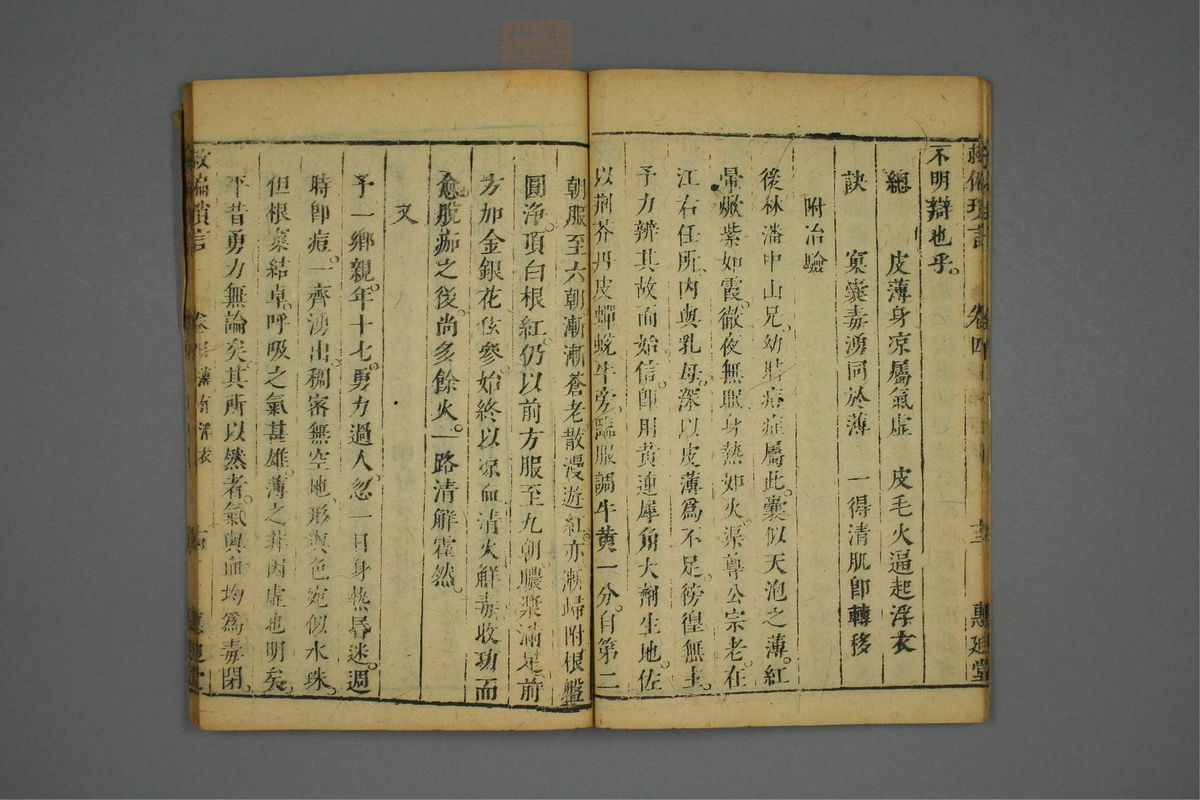 救偏瑣言 卷四 十三 惠廸堂
不明辯也乎。
總 皮薄身凉屬氣虛 皮毛火逼起浮衣
訣 窠囊毒湧同於薄 一得清肌卽轉移
附治驗
後林潘申山兄。幼時痘症屬此。囊似天泡之薄。紅
暈燉紫如霞。徹夜無眠身熱如火。渠尊公宗老。在
江右任所。内與乳母。深以皮薄爲不足。徬徨無主。
予力辨其故而始信。卽用黄連犀角大劑生地。佐
以荆芥丹皮蟬蛻牛旁。臨服調牛黄一分。自第二
朝服至六朝漸漸蒼老散漫遊紅。亦漸歸附根盤
圓淨。項白根紅。仍以前方服至九朝膿漿滿足。前
方加金銀花伭參。始終以凉血清火解毒收功而
愈。脫痂之後。尚多餘火。一路清解霍然。
又
予一鄉親。年十七。勇力過人。忽一日身熱昏迷。週
時卽痘。一齊湧出。稠密無空地。形與色宛似水珠。
但根窠結卓呼吸之氣甚雄。薄之非因虛也明矣。
平昔勇力無論矣。其所以然者。氣與血均爲毒閉。
救偏瑣言 卷四 惠廸堂